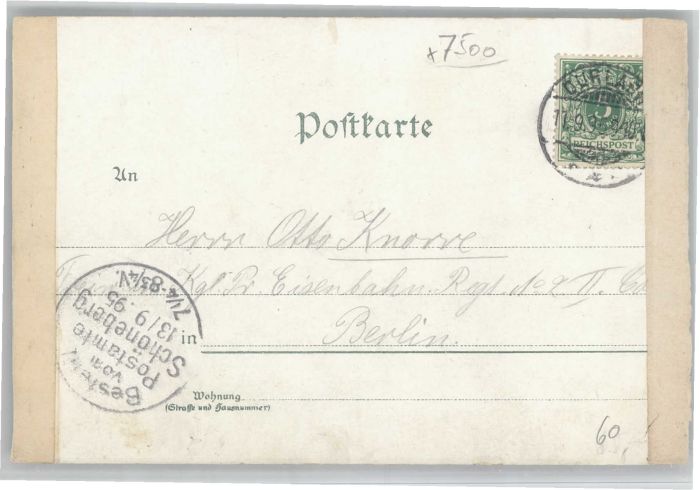 x7500
5
REICHSPOST
Postkarte
An
Herrn Otto Knorre
Kgl. Pr. Eisenbahn-Regt. No 2 II.
in Berlin.
Bestellt
vom
Postamte
Schöneberg
13/9.95
7¼-8¾N.
Wohnung
(Straße und Hausnummer)
60